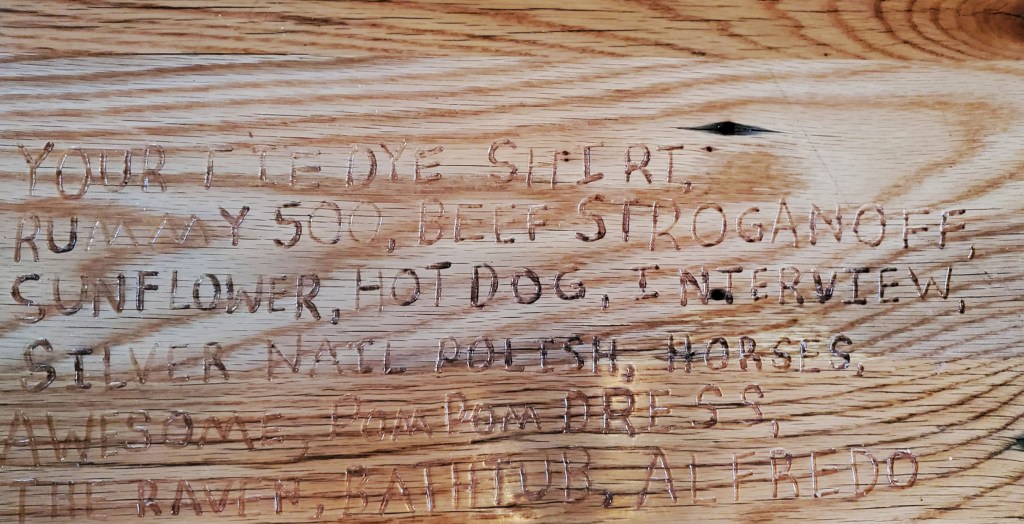 YOUR TIE DYE SHIRT,
RUMMY 500, BEEF STROGANOFF,
SUNFLOWER, HOT DOG, INTERVIEW,
SILVER NAIL POLISH, HORSES,
AWESOME, POM POM DRESS,
THE RAVEN, BATHTUB, ALFREDO